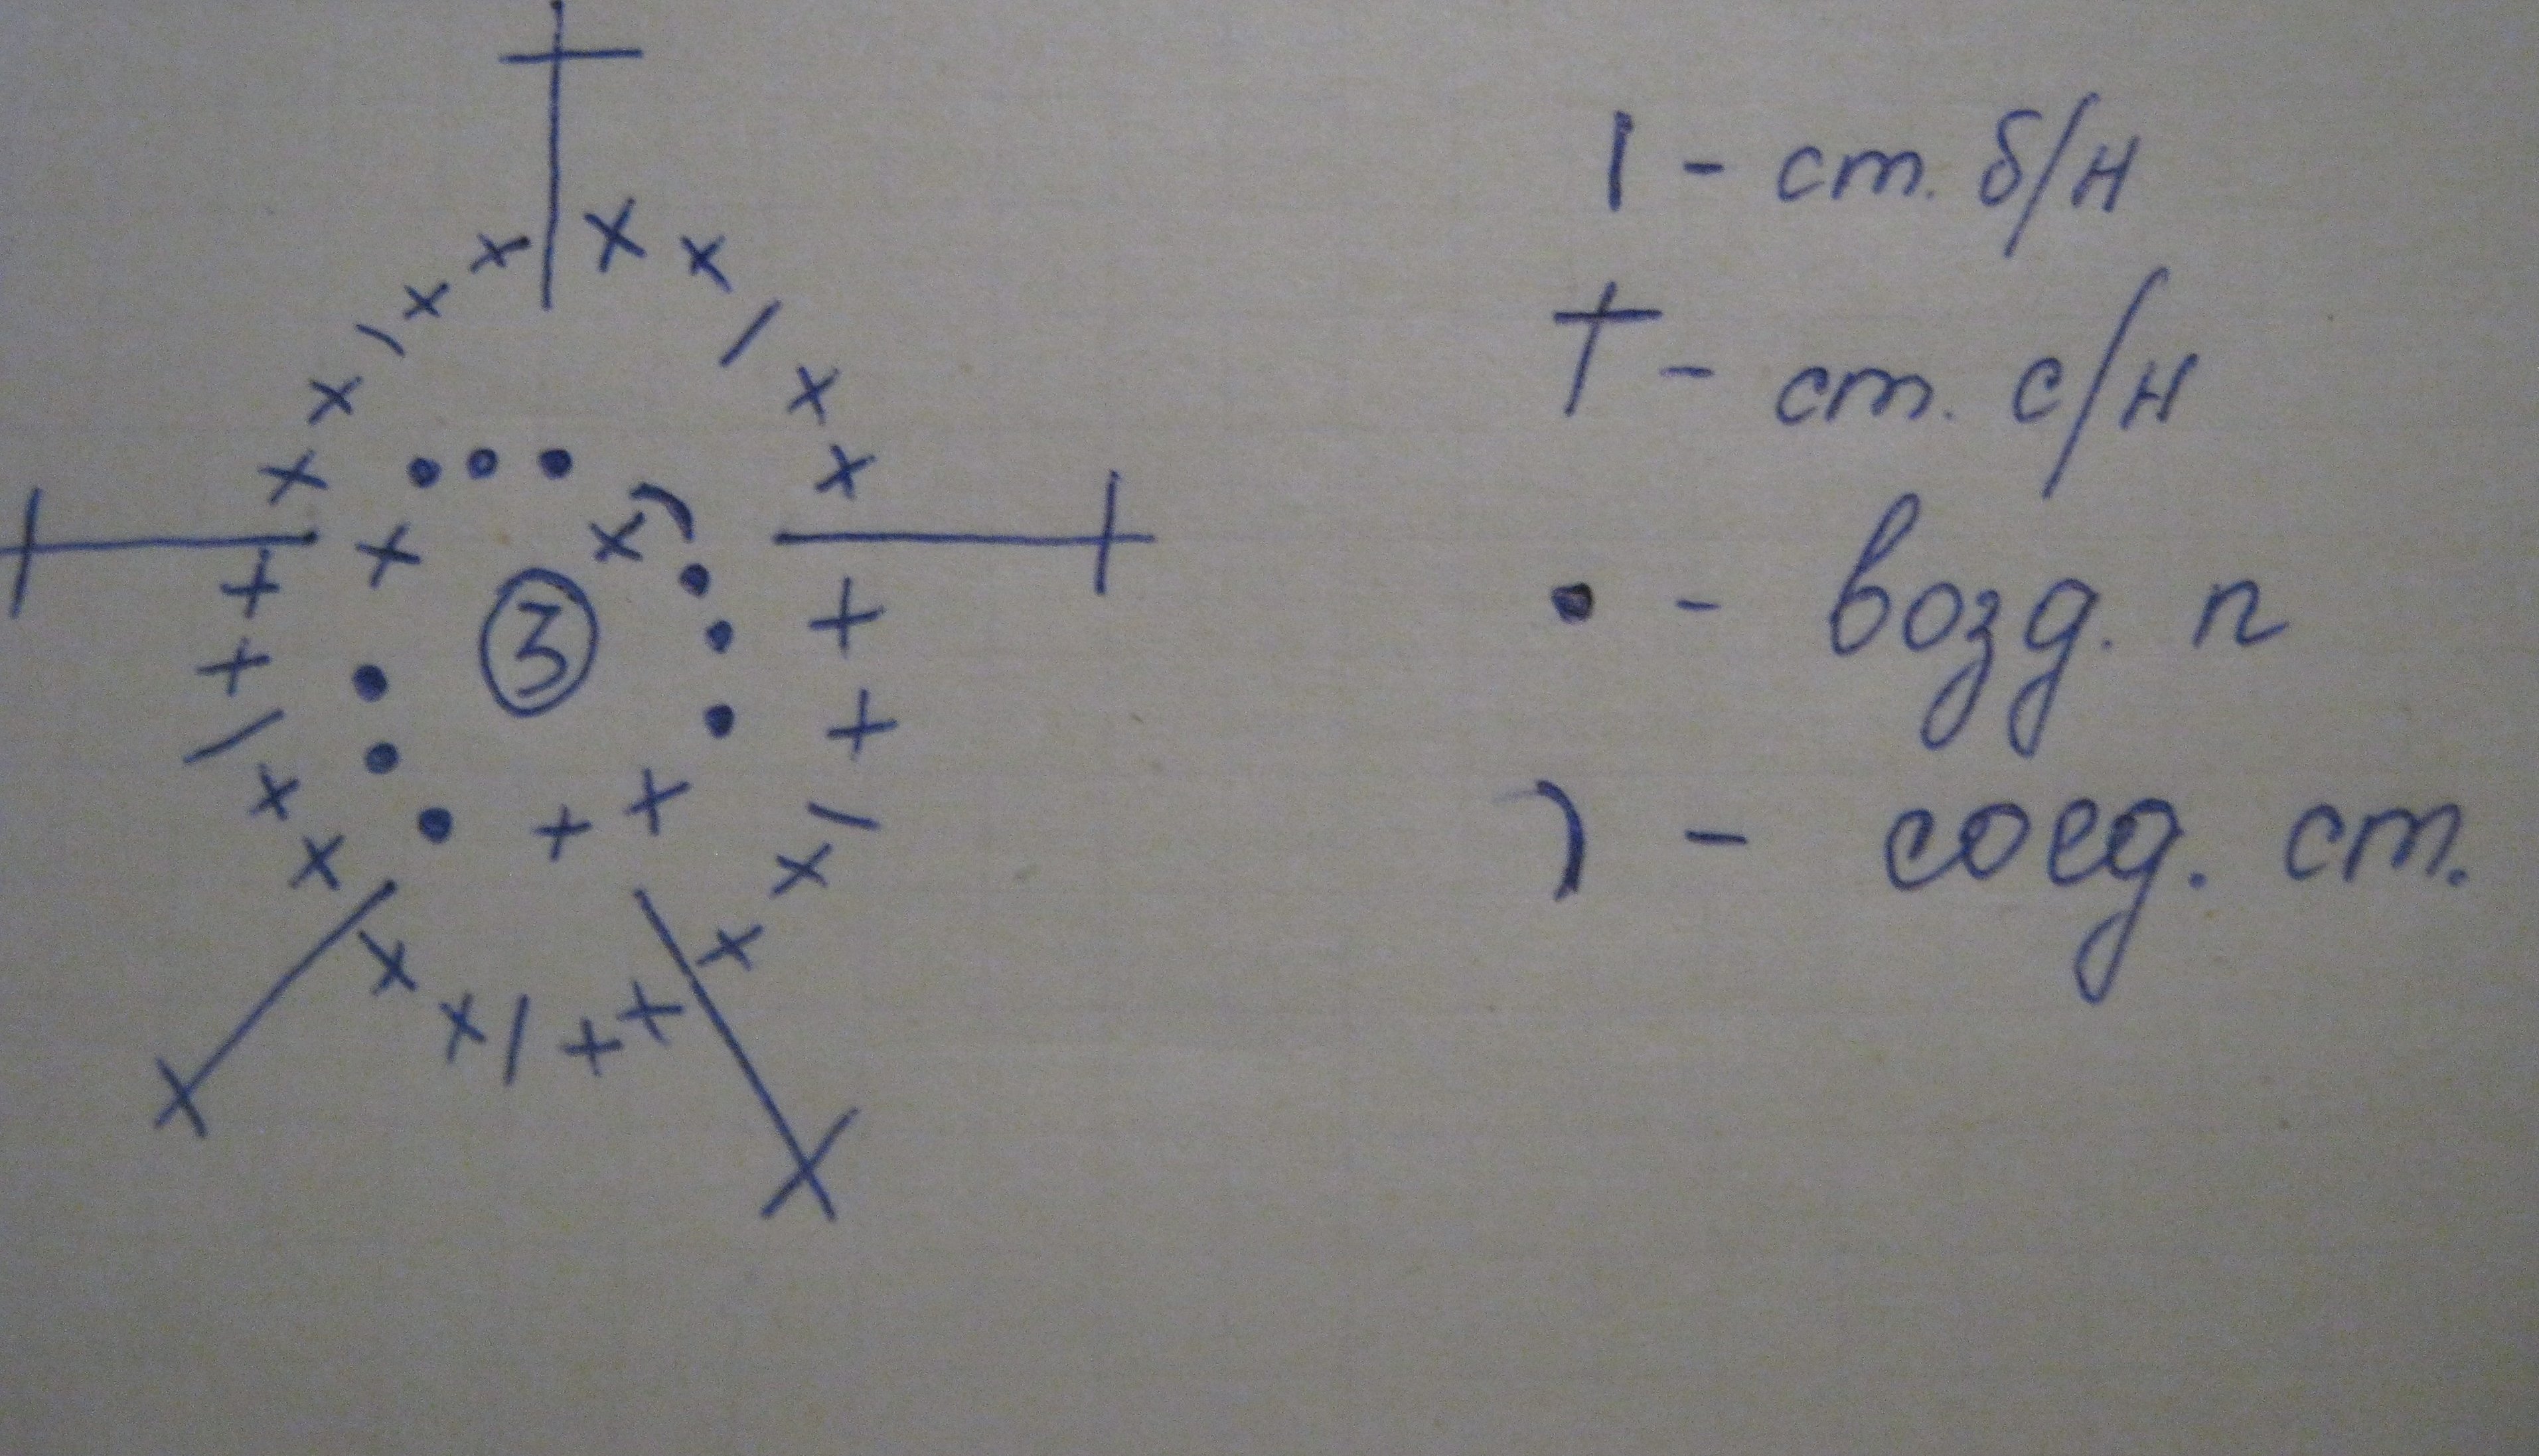 3
| - ст. б/н
† - ст. с/н
• - возд. п
) - соед. ст.